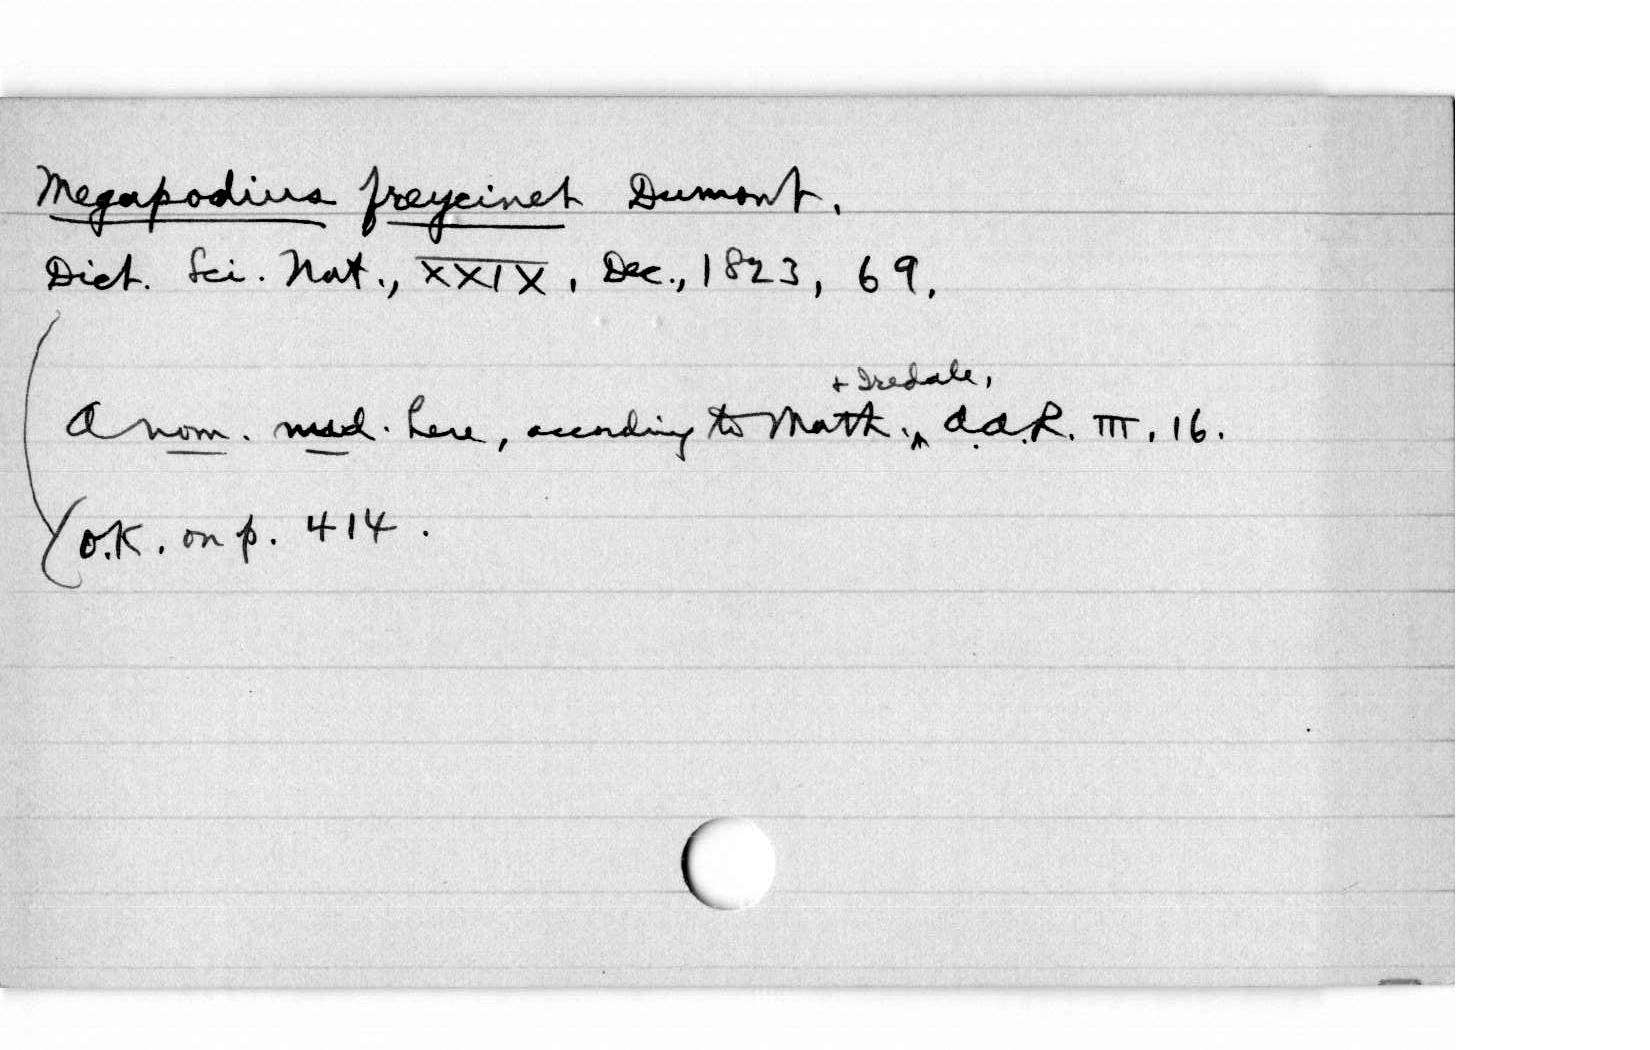 Megapodius freycinet Dumont.
Dict. Sci. Nat., XXIX, Dec., 1823, 69.
+ Iredale,
A nom. nud. here, according to Math., A.A.R. III, 16.
O.K. on p. 414.